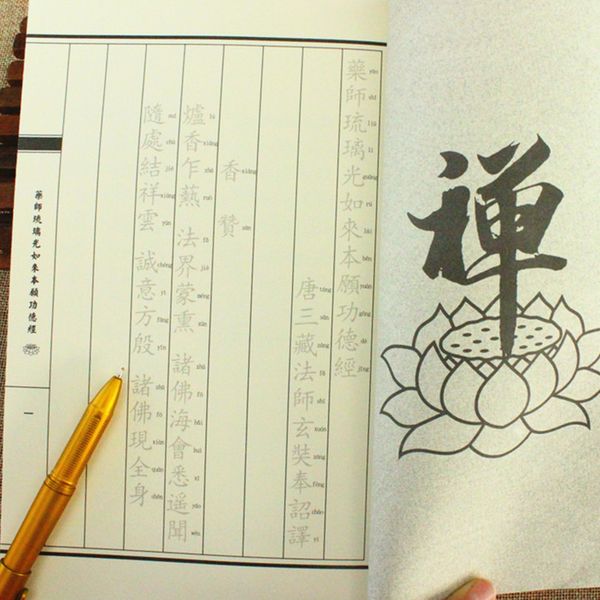 禪
藥師琉璃光如來本願功德經
唐三藏法師玄奘奉詔譯
香贊
爐香乍爇 法界蒙熏 諸佛海會悉遙聞
隨處結祥雲 誠意方殷 諸佛現全身
藥師琉璃光如來本願功德經
一